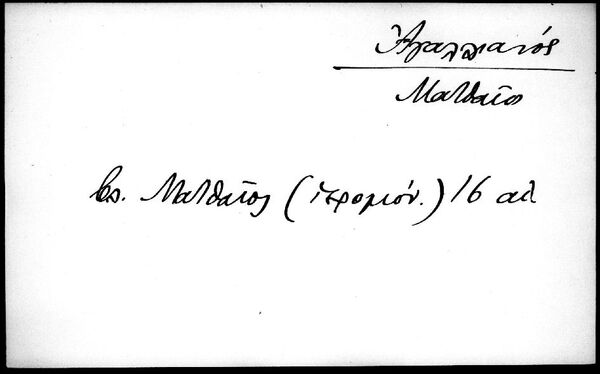 Ἀγαλλιανός
Ματθαῖος
βλ. Ματθαῖος (ἱερομόν.) 16 αἰ